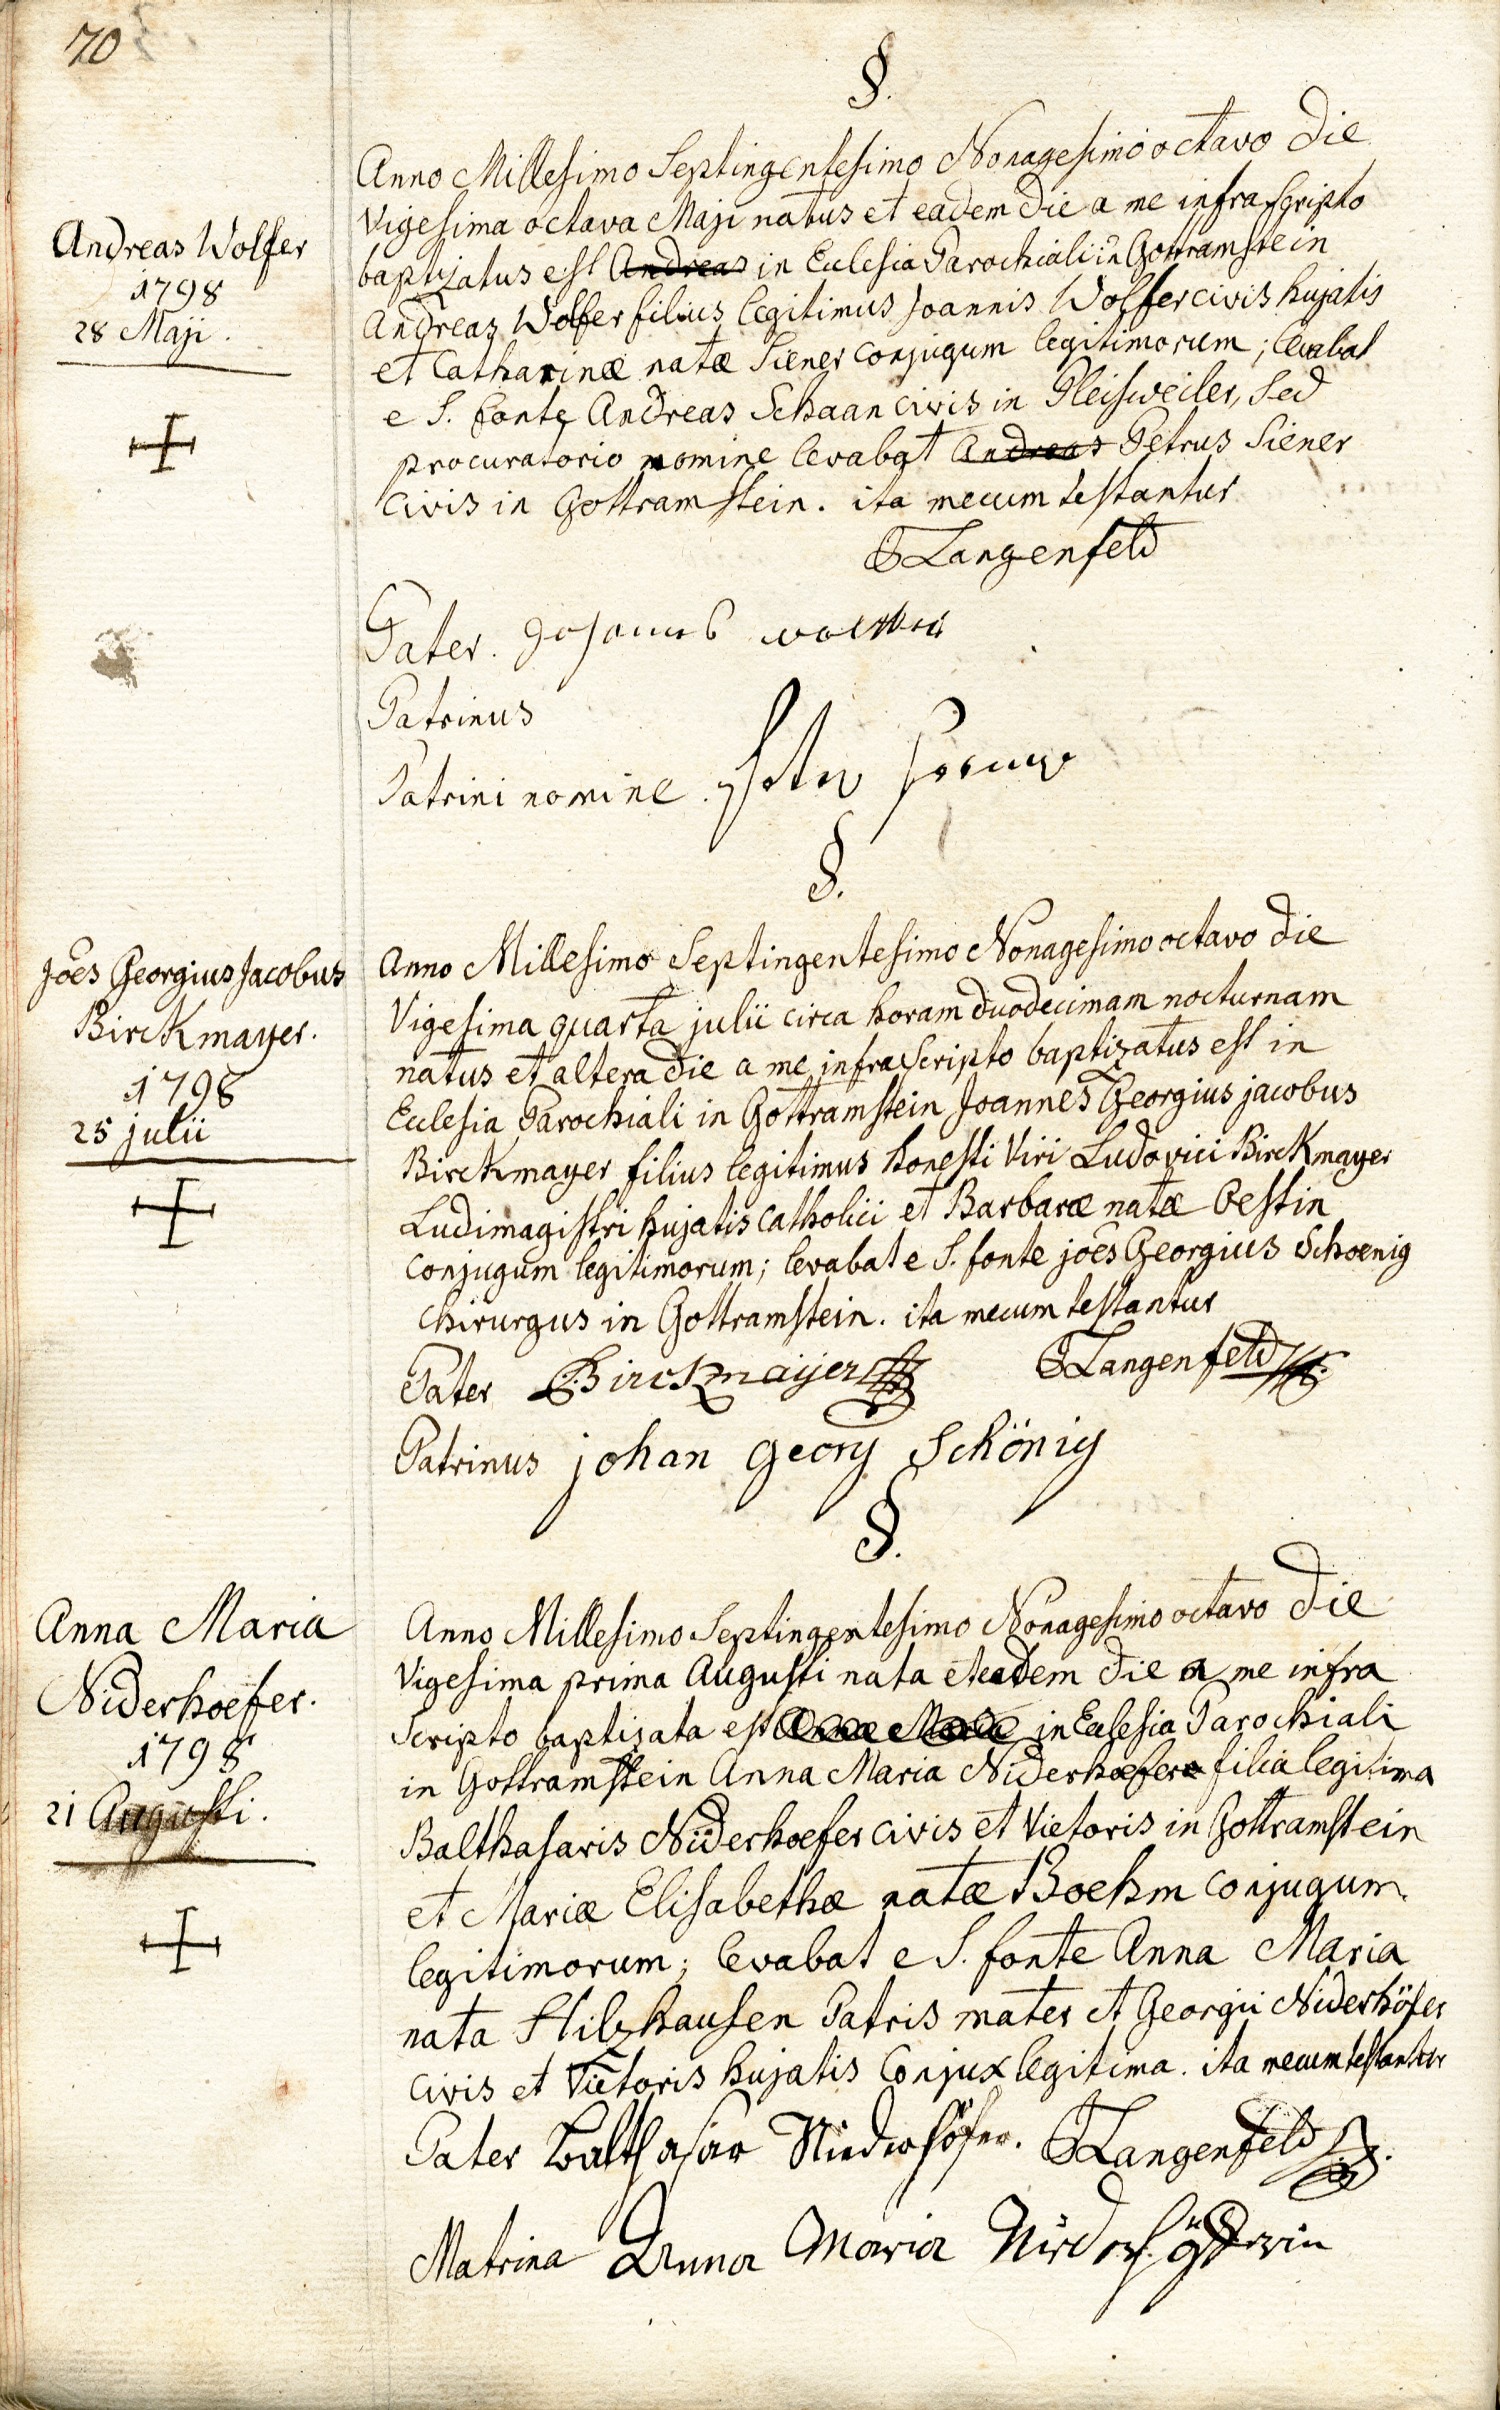 70
§.
Andreas Wolfer
1798
28 Maji.
Anno Millesimo Septingentesimo Nonagesimo octavo Die
Vigesima octava Maji natus et eadem Die a me infra scripto
baptizatus est Andreas in Ecclesia Parochiali in Gottramstein
Andreas Wolfer filius legitimus Joannis Wolfer civis hujatis
et Catharinæ natæ Siener conjugum legitimorum; levabat
e S. fonte Andreas Schaan civis in Gleisweiler, Sed
procuratorio nomine levabat Andreas Petrus Siener
Civis in Gottramstein. ita mecum testantur
Langenfeld
Pater. Johannes
Patrinus
Patrini nomine.
§.
Joēs Georgius Jacobus
Birckmayer.
1798
25 julii
Anno Millesimo Septingentesimo Nonagesimo octavo Die
Vigesima quarta julii circa horam duodecimam nocturnam
natus et altera Die a me infra Scripto baptizatus est in
Ecclesia Parochiali in Gottramstein Joannes Georgius jacobus
Birckmayer filius legitimus honesti Viri Ludovici Birckmayer
Ludimagistri hujatis Catholici et Barbaræ natæ Oestin
conjugum legitimorum; levabat e S. fonte joēs Georgius Schoenig
Chirurgus in Gottramstein. ita mecum testantur
Langenfeld
Pater Birckmaijer
Patrinus johan georg Schönig
§.
Anna Maria
Niderhoefer.
1798
21 Augusti.
Anno Millesimo Septingentesimo Nonagesimo octavo Die
Vigesima prima Augusti nata et eadem Die a me infra
Scripto baptisata est Anna Maria in Ecclesia Parochiali
in Gottramstein Anna Maria Niderhoefer filia legitima
Balthasaris Niderhoefer civis et Vietoris in Gottramstein
et Mariæ Elisabethæ natæ Boehm conjugum
legitimorum; levabat e S. fonte Anna Maria
nata Hilzhausen Patris mater et Georgii Niderhöfer
civis et Vietoris hujatis Conjux legitima. ita mecum testantur
Pater Balthasar Niederhöfer. Langenfeld
Matrina Anna Maria